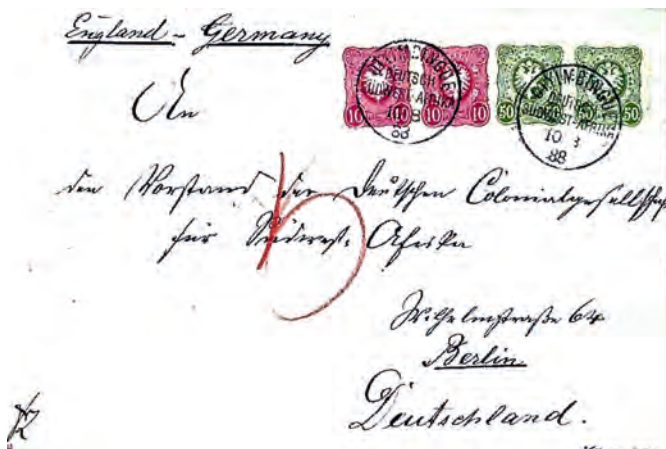 England - Germany
10 10 10 10 50 50 50
An
OTYIMBINGUE
DEUTSCH
SÜDWEST-AFRIKA
10 8
88
OTYIMBINGUE
DEUTSCH
SÜDWEST-AFRIKA
10
88
den Vorstand der Deutschen Colonialgesellschaft
5
für Südwest-Afrika
Wilhelmstraße 64
Berlin
Deutschland.